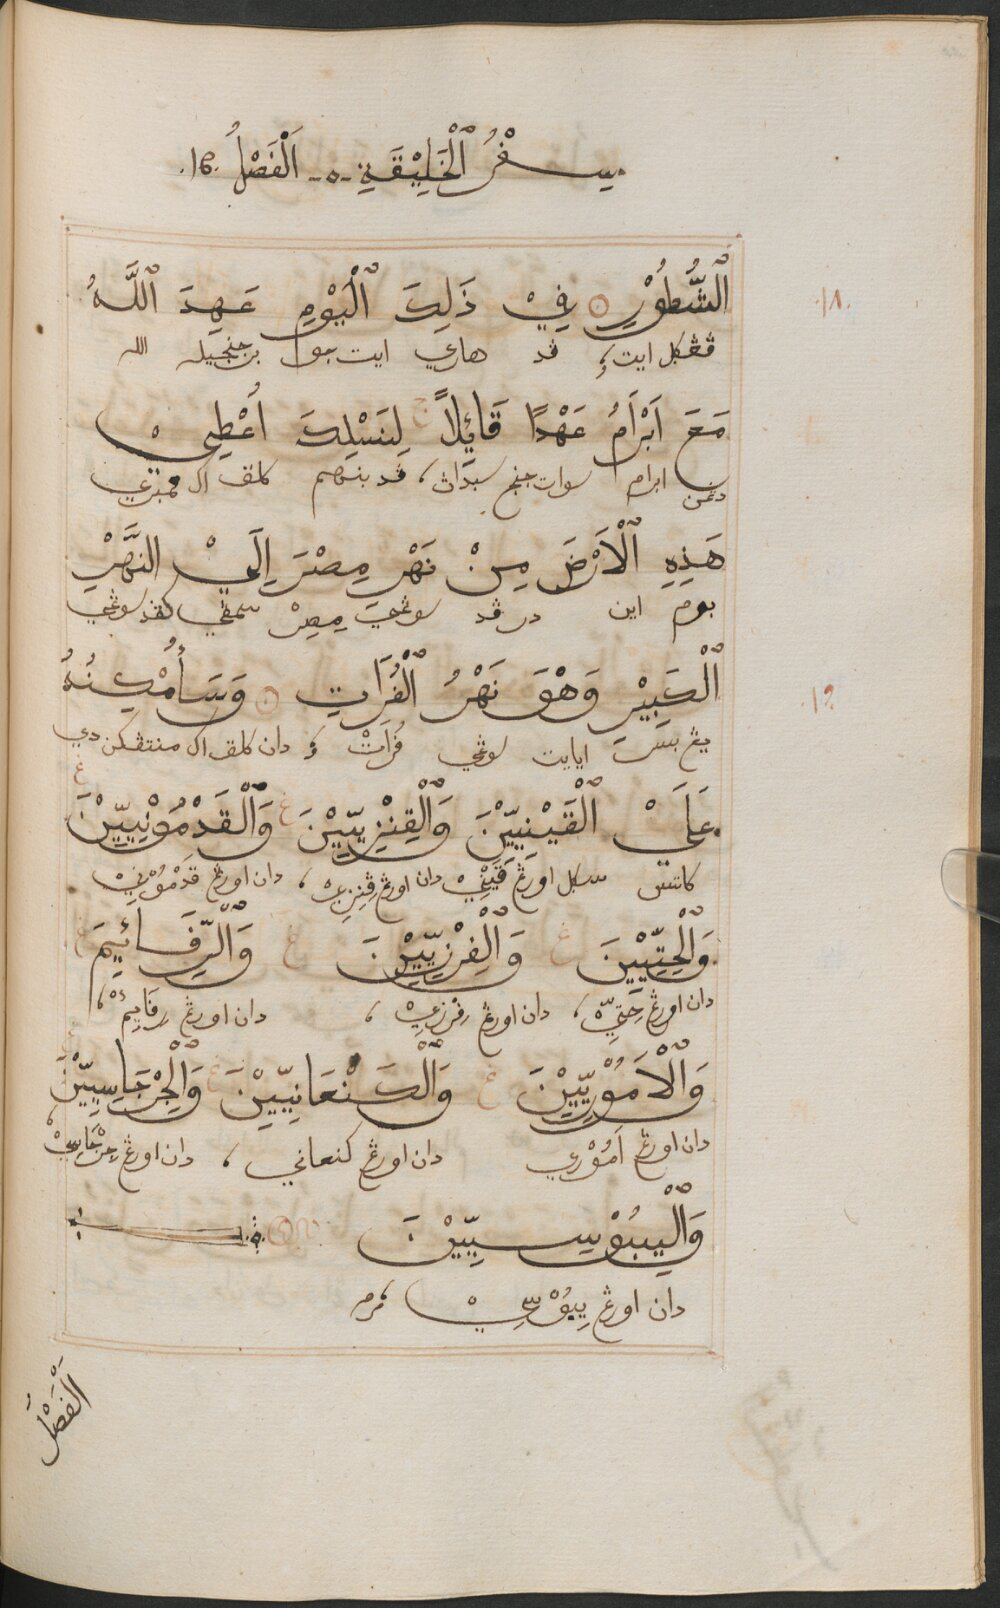 سِفْرُ ٱلْخَلِيْقَةِ -٥- اَلْفَصْلُ ١٥.
ٱلشُّطُوْرِ ۞ فِيْ ذَلِكَ ٱلْيَوْمِ عَهِدَ ٱللَّهُ
١٨.
ڤڠݢل ايت، ڤد هاري ايت جوݢ برجنجيله الله
مَعَ اَبْرَامُ عَهْدًا قَائِلًا لِنَسْلِكَ اُعْطِيْ
دڠن ابرام سوات جنجي سبداڽ، ڤد بنيهم كامق اكو ممبري
هَذِهِ ٱلْاَرْضَ مِنْ نَهْرِ مِصْرَ اِلَيْ النَّهْرِ
بوم اين درڤد سوڠي مِصِرْ سمڤي كڤد سوڠي
ٱلْكَبِيْرِ وَهْوَ نَهْرُ ٱلْفُرَاتِ ۞ وَسَأُمْكِنُهُ
١٩.
يڠ بسر ايايت سوڠي فُرَاتْ، دان كامق اكو منتڤكن دي
عَلَيْ ٱلْقَيْنِيِّيْنَ وَٱلْقِنِزِيِّيْنَ وَٱلْقَدْمُوْنِيِّيْنَ
كاتس سكل اورڠ قَيْنِيْ دان اورڠ قِنِزِيْ، دان اورڠ قَدْمُوْنِيْ
وَٱلْحِتِّيِّيْنَ وَٱلْفِرْزِيِّيْنَ وَٱلرَّفَائِيمَ
دان اورڠ حِتِّيْ، دان اورڠ فِرْزِيْ، دان اورڠ رَفَايِمْ،
وَٱلْاَمُوْرِيِّيْنَ وَٱلْكَنْعَانِيِّيْنَ وَٱلْجِرْجَاسِيِّيْنَ
دان اورڠ اَمُوْري دان اورڠ كنعاني، دان اورڠ جِرْجَاسِيْ،
وَٱلْيَبُوْسِيِّيْنَ
دان اورڠ يَبُوْسِيْ
اَلْفَصْلُ